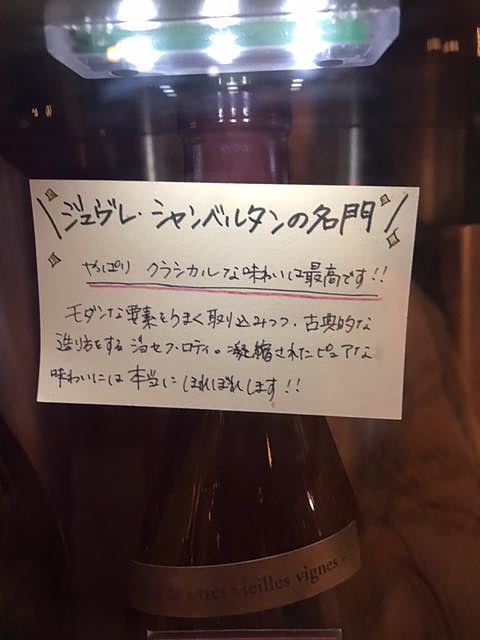 ＼ジュヴレ・シャンベルタンの名門／
やっぱり クラシカルな味わいは最高です!!
モダンな要素をうまく取り込みつつ、古典的な
造り方をするジョセフ・ロティ。凝縮されたピュアな
味わいには本当にほれぼれします!!
de « très vieilles vignes »